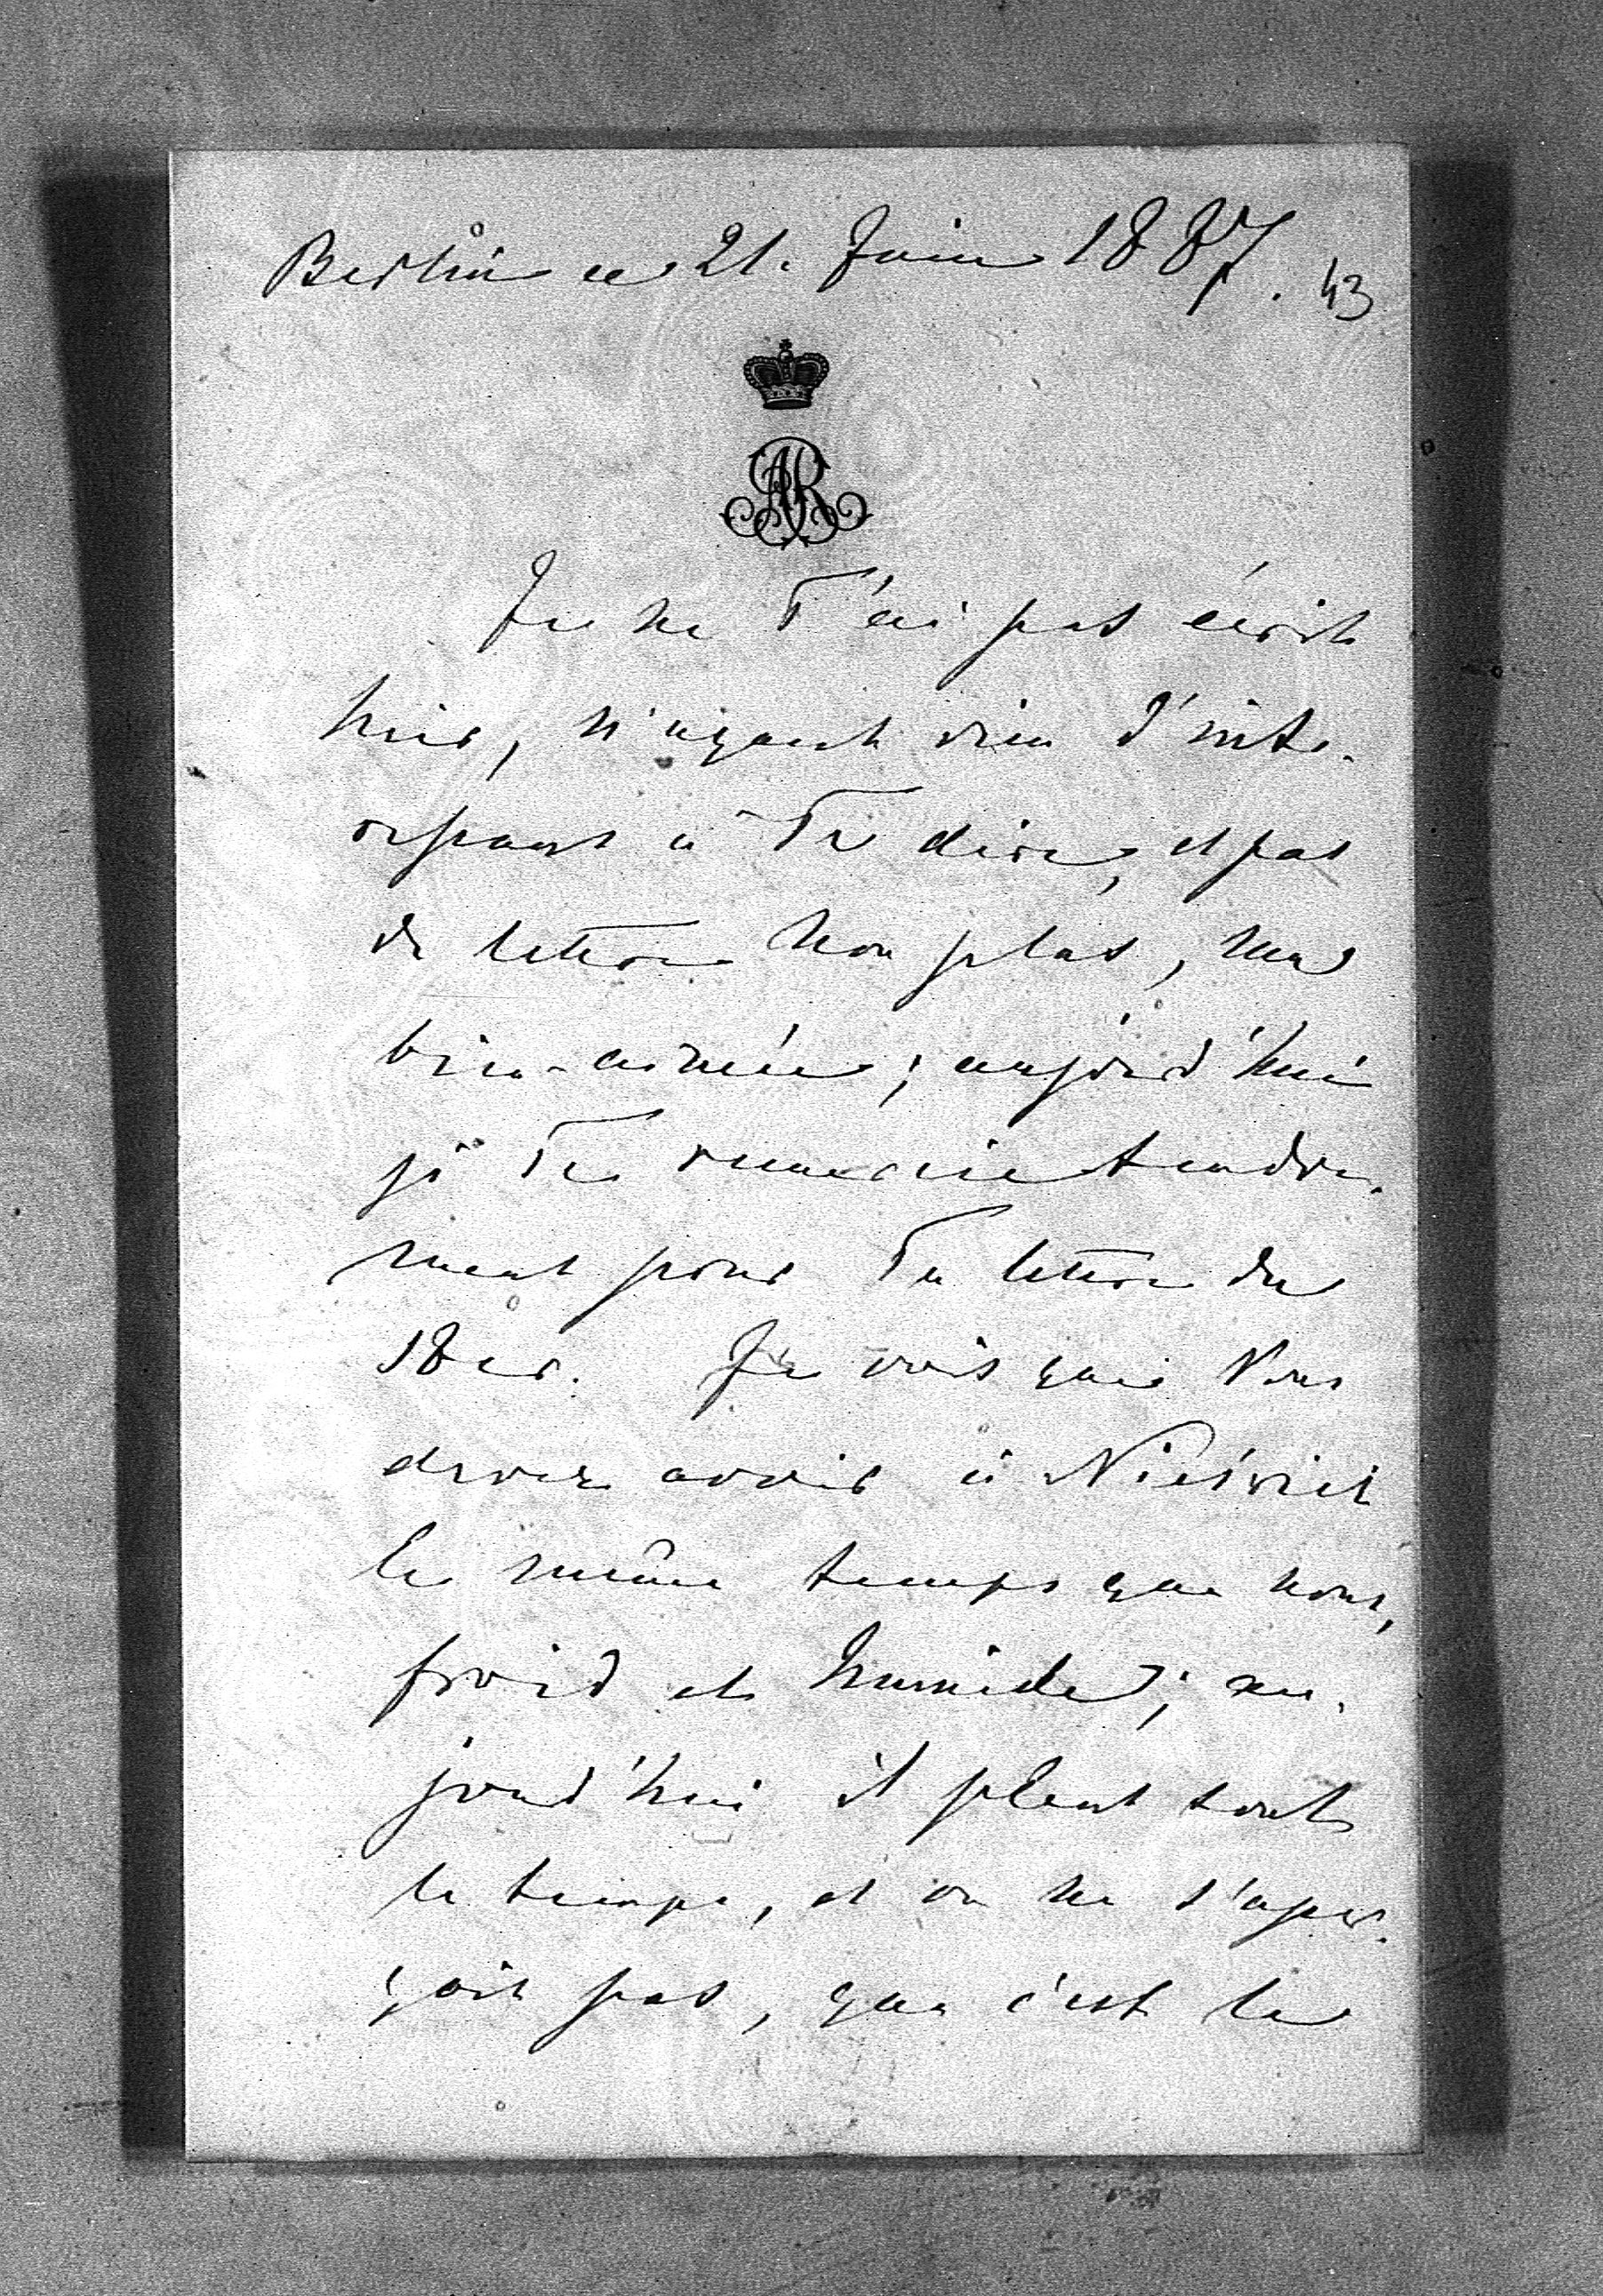 Berlin ce 21. Juin 1887. 43
AR
Je ne T'ai pas écrit
hier, n'ayant rien d'inté-
ressant à Te dire, et pas
de lettre non plus, ma
bien-aimée; aujourd'hui
je Te remercie tendre-
ment pour Ta lettre du
18 cr. Je vois que Vous
devez avoir à Nieśwież
le même temps que nous,
froid et humide; au-
jourd'hui il pleut tout
le temps, et on ne s'aper-
çoit pas, que c'est le